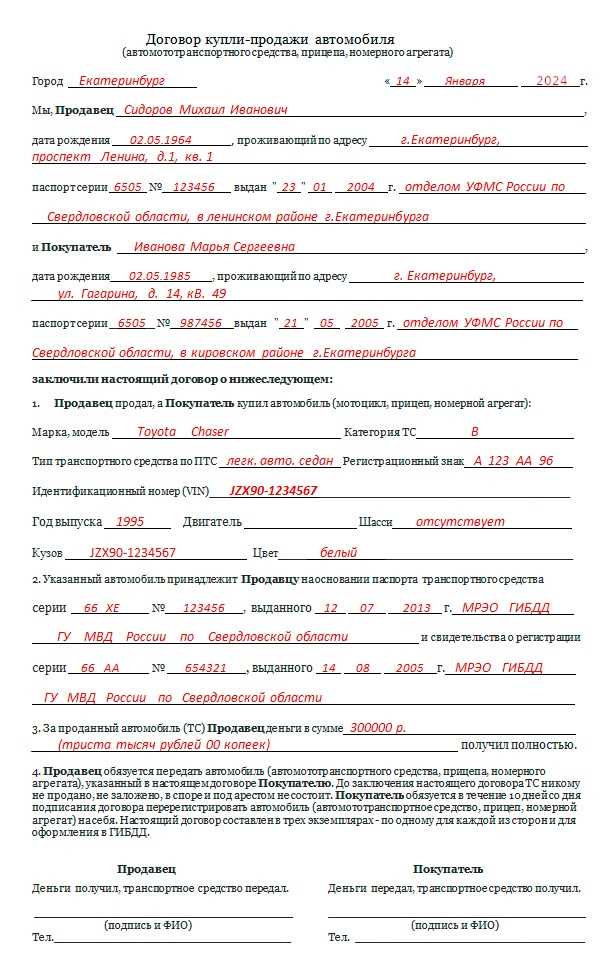 Договор купли-продажи автомобиля
(автомототранспортного средства, прицепа, номерного агрегата)
Город Екатеринбург « 14 » Января 2024 г.
Мы, Продавец Сидоров Михаил Иванович ,
дата рождения 02.05.1964 , проживающий по адресу г.Екатеринбург,
проспект Ленина, д.1, кв. 1
паспорт серии 6505 № 123456 выдан "23" 01 2004 г. отделом УФМС России по
Свердловской области, в ленинском районе г.Екатеринбурга
и Покупатель Иванова Марья Сергеевна ,
дата рождения 02.05.1985 , проживающий по адресу г. Екатеринбург,
ул. Гагарина, д. 14, кВ. 49
паспорт серии 6505 № 987456 выдан "21" 05 2005 г. отделом УФМС России по
Свердловской области, в кировском районе г.Екатеринбурга
заключили настоящий договор о нижеследующем:
1. Продавец продал, а Покупатель купил автомобиль (мотоцикл, прицеп, номерной агрегат):
Марка, модель Toyota Chaser Категория ТС В
Тип транспортного средства по ПТС легк. авто. седан Регистрационный знак А 123 АА 96
Идентификационный номер (VIN) JZX90-1234567
Год выпуска 1995 Двигатель Шасси отсутствует
Кузов JZX90-1234567 Цвет белый
2. Указанный автомобиль принадлежит Продавцу на основании паспорта транспортного средства
серии 66 ХЕ № 123456 , выданного 12 07 2013 г. МРЭО ГИБДД
ГУ МВД России по Свердловской области и свидетельства о регистрации
серии 66 АА № 654321 , выданного 14 08 2005 г. МРЭО ГИБДД
ГУ МВД России по Свердловской области
3. За проданный автомобиль (ТС) Продавец деньги в сумме 300000 р.
(триста тысяч рублей 00 копеек) получил полностью.
4. Продавец обязуется передать автомобиль (автомототранспортного средства, прицепа, номерного
агрегата), указанный в настоящем договоре Покупателю. До заключения настоящего договора ТС никому
не продано, не заложено, в споре и под арестом не состоит. Покупатель обязуется в течение 10 дней со дня
подписания договора перерегистрировать автомобиль (автомототранспортное средство, прицеп, номерной
агрегат) на себя. Настоящий договор составлен в трех экземплярах - по одному для каждой из сторон и для
оформления в ГИБДД.
Продавец Покупатель
Деньги получил, транспортное средство передал. Деньги передал, транспортное средство получил.
(подпись и ФИО) (подпись и ФИО)
Тел. Тел.